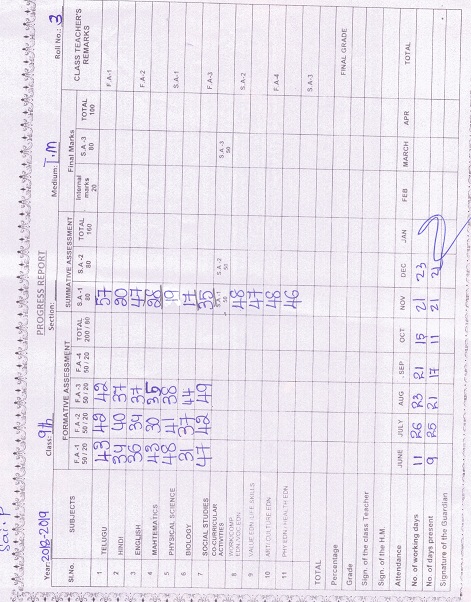 Sai. P
PROGRESS REPORT
Year: 2018-2019 Class: 9th Section: Medium: T.M Roll No.: 3
Sl.No. SUBJECTS FORMATIVE ASSESSMENT SUMMATIVE ASSESSMENT Final Marks CLASS TEACHER'S REMARKS
F.A-1 50/20 F.A-2 50/20 F.A-3 50/20 F.A-4 50/20 TOTAL 200/80 S.A-1 80 S.A-2 80 TOTAL 160 Internal marks 20 S.A-3 80 TOTAL 100
1 TELUGU 43 42 42 57 F.A-1
2 HINDI 34 40 37 20
3 ENGLISH 36 34 37 47 F.A-2
4 MAHTEMATICS 43 30 35 28
5 PHYSICAL SCIENCE 48 41 38 19 S.A-1
6 BIOLOGY 31 37 44 17
7 SOCIAL STUDIES 47 42 49 35 F.A-3
CO-CURRICULAR ACTIVITIES S.A-1 50 S.A-2 50 S.A-3 50
8 WORK/COMP. EDN/VOC EDN 48 S.A-2
9 VALUE EDN LIFE SKILLS 47
10 ART/CULTURE EDN 48 F.A-4
11 PHY.EDN / HEALTH EDN 46
TOTAL S.A-3
Percentage
Grade FINAL GRADE
Sign. of the class Teacher
Sign. of the H.M.
Attendance JUNE JULY AUG. SEP. OCT NOV DEC JAN FEB MARCH APR TOTAL
No. of working days 11 26 23 21 15 21 23
No. of days present 9 25 21 17 11 21 21
Signature of the Guardian